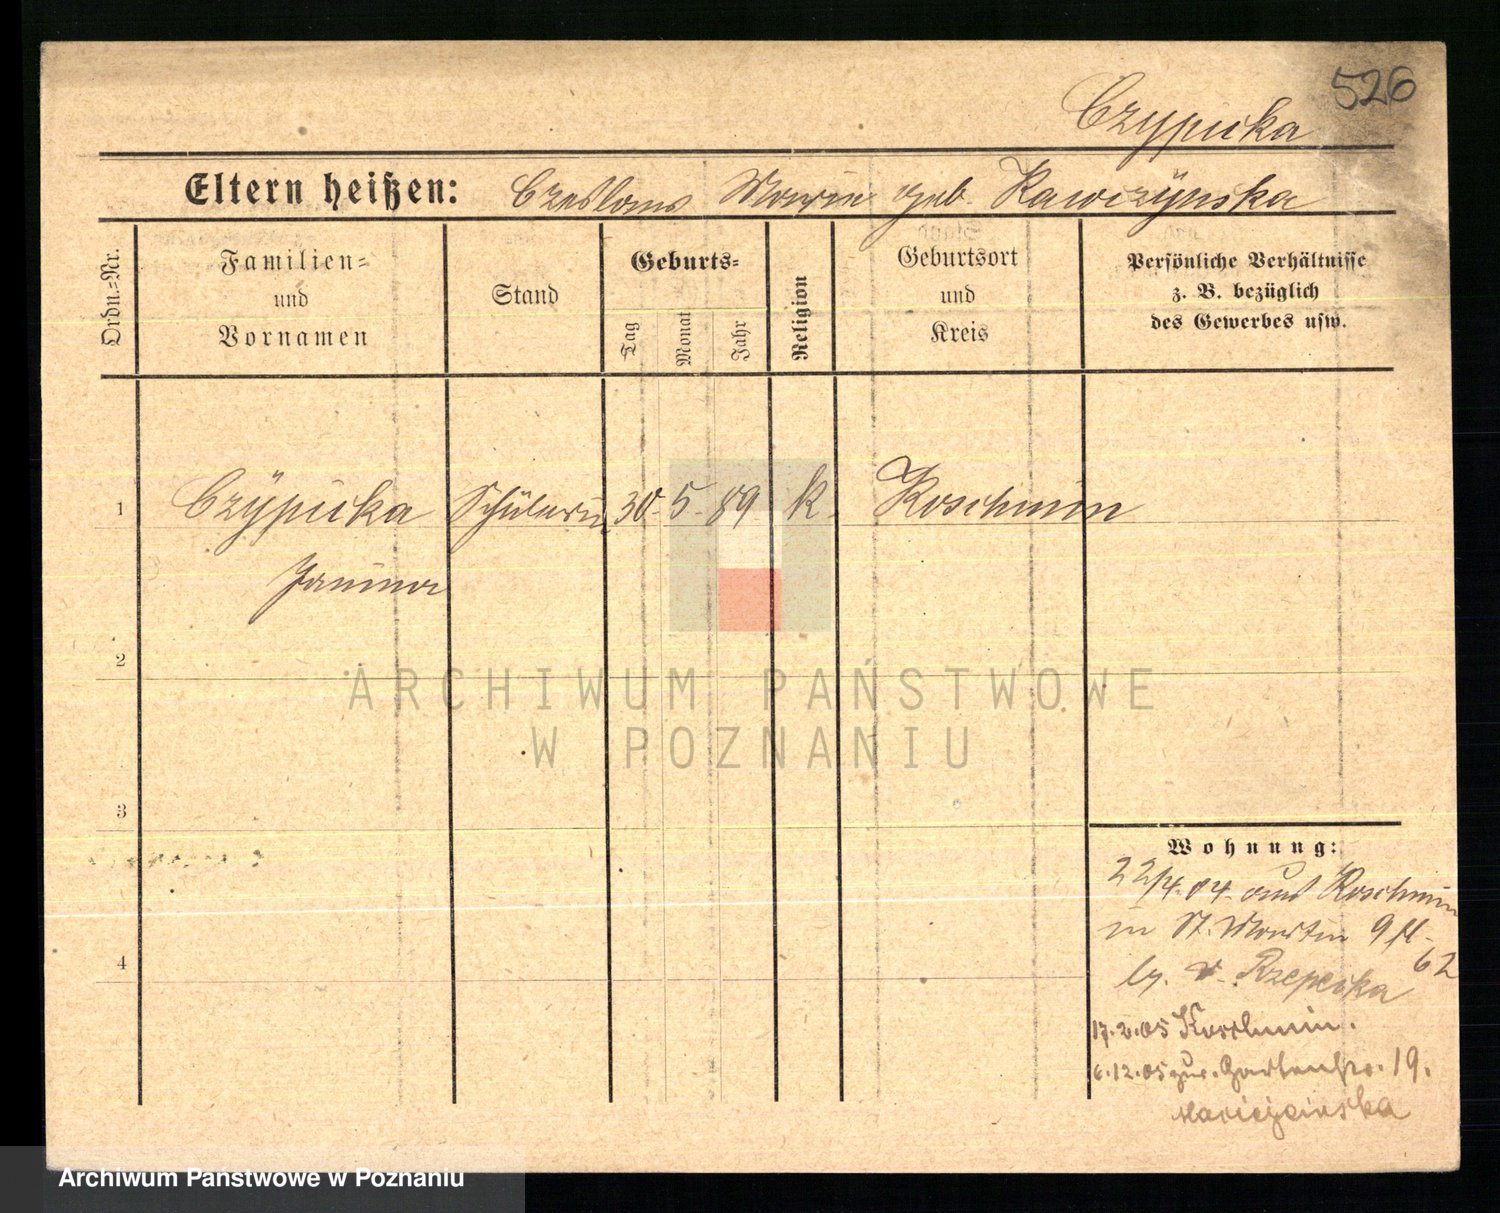 526
Czypicka
Eltern heißen: Czeslaus Marie geb. Rawczÿnska
Ordn.=Nr.
Familien=
und
Vornamen
Stand
Geburts=
Tag
Monat
Jahr
Religion
Geburtsort
und
Kreis
Persönliche Verhältnisse
z. B. bezüglich
des Gewerbes usw.
1 Czÿpicka Schülerin 30. 5. 89 k. Koschmin
Janina
2
3
4
Wohnung:
22/4. 04. aus Koschmin
in St. Martin 9 II.
62
by. v. Rzepecka
17.2.05 Koschmin.
6.12.05 zur. Gartenstr. 19.
ARCHIWUM PAŃSTWOWE
W POZNANIU
Archiwum Państwowe w Poznaniu